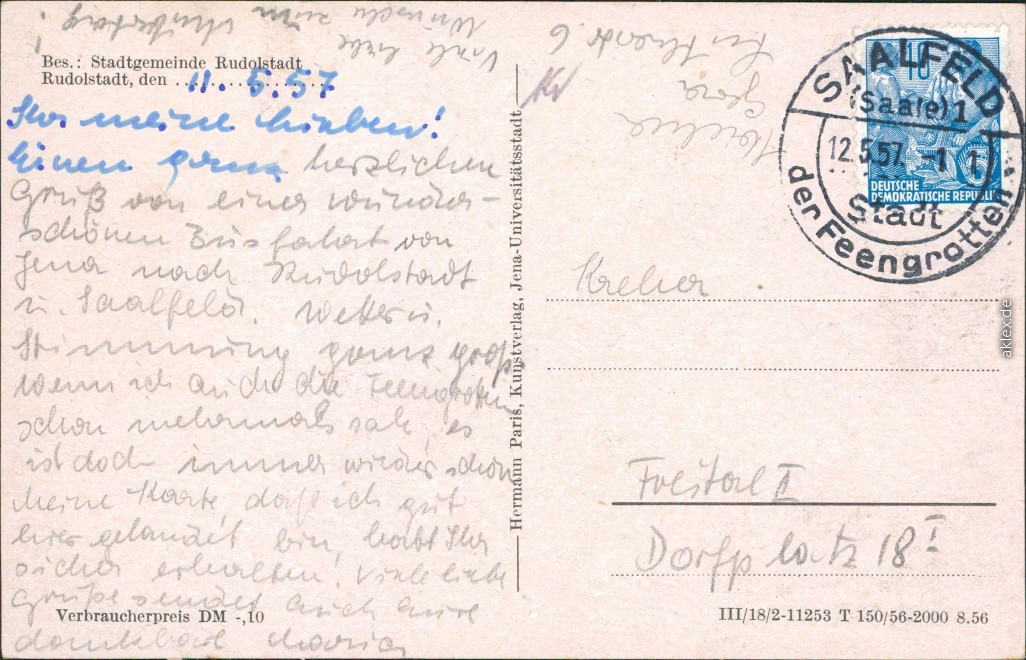 Bes.: Stadtgemeinde Rudolstadt
Rudolstadt, den 11.5.57
Ihr meine Lieben!
Einen ganz herzlichen
Gruß von einer wunder-
schönen Busfahrt von
Jena nach Rudolstadt
u. Saalfeld. Wetter u.
Stimmung ganz groß,
wenn ich auch die Feengrotten
schon mehrmals sah, es
ist doch immer wieder schön
Meine Karte, daß ich gut
hier gelandet bin, habt Ihr
sicher erhalten! Viele liebe
Grüße sendet Euch Eure
dankbare Maria
Viele liebe
Wünsche zum
Muttertag!
Verbraucherpreis DM -,10
Hermann Paris, Kunstverlag, Jena-Universitätsstadt
Gera
SAALFELD
(Saale) 1
12.5.57.-1
1
Stadt
der Feengrotten
10
DEUTSCHE
DEMOKRATISCHE REPUBLIK
5
Freital I
Dorfplatz 18 I
III/18/2-11253 T 150/56-2000 8.56
aklex.de